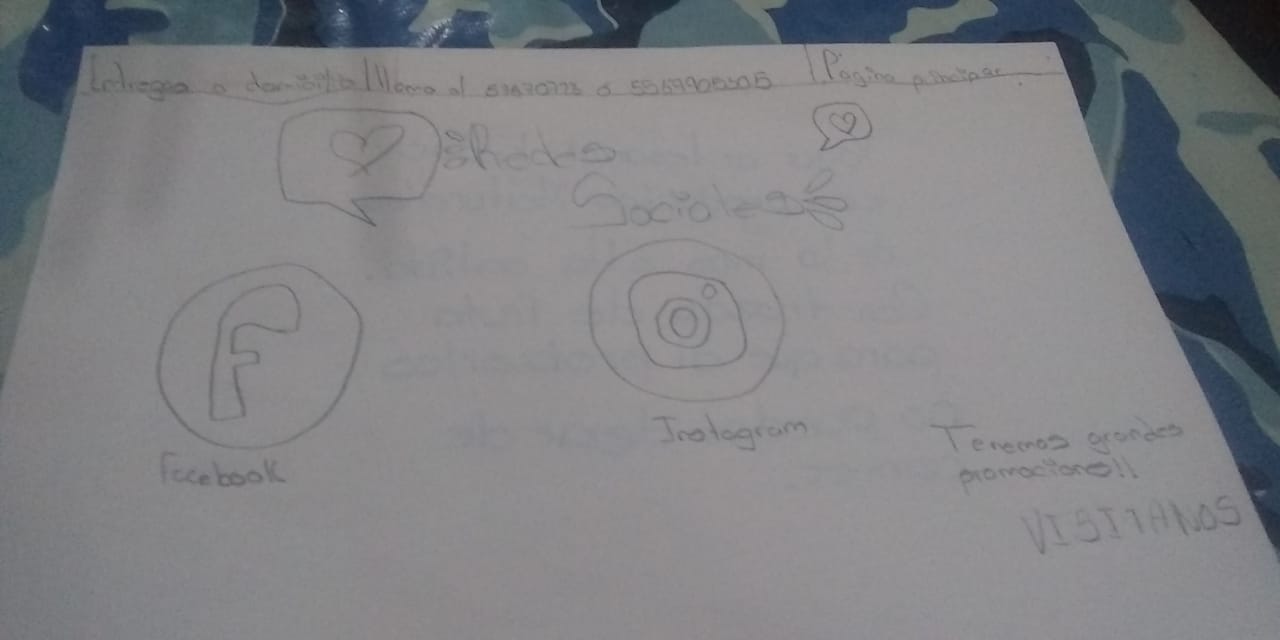 Entregas a domicilio | Llama al 57670773 o 5569905505 | Pagina principal
Redes
Sociales
F
Facebook
Instagram
Tenemos grandes
promociones!!
VISITANOS